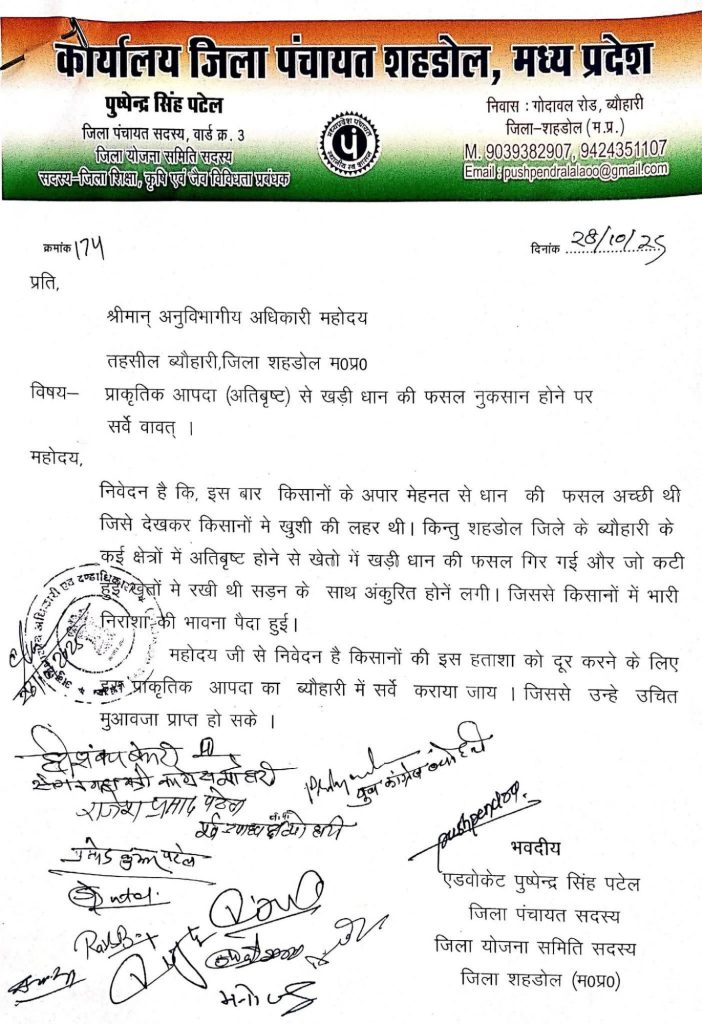 कार्यालय जिला पंचायत शहडोल, मध्य प्रदेश
पुष्पेन्द्र सिंह पटेल
जिला पंचायत सदस्य, वार्ड क्र. 3
जिला योजना समिति सदस्य
सदस्य-जिला शिक्षा, कृषि एवं जैव विविधता प्रबंधक
पं
निवास : गोदावल रोड, ब्यौहारी
जिला-शहडोल (म.प्र.)
M. 9039382907, 9424351107
Email : pushpendralalaoo@gmail.com
क्रमांक 174
दिनांक 28/10/25
प्रति,
श्रीमान् अनुविभागीय अधिकारी महोदय
तहसील ब्यौहारी,जिला शहडोल म0प्र0
विषय– प्राकृतिक आपदा (अतिबृष्ट) से खड़ी धान की फसल नुकसान होने पर
सर्वे वावत् ।
महोदय,
निवेदन है कि, इस बार किसानों के अपार मेहनत से धान की फसल अच्छी थी
जिसे देखकर किसानों मे खुशी की लहर थी। किन्तु शहडोल जिले के ब्यौहारी के
कई क्षेत्रों में अतिबृष्ट होने से खेतो में खड़ी धान की फसल गिर गई और जो कटी
हुई खेतों मे रखी थी सड़न के साथ अंकुरित होनें लगी। जिससे किसानों में भारी
निराशा की भावना पैदा हुई।
महोदय जी से निवेदन है किसानों की इस हताशा को दूर करने के लिए
इस प्राकृतिक आपदा का ब्यौहारी में सर्वे कराया जाय । जिससे उन्हे उचित
मुआवजा प्राप्त हो सके ।
राजेश प्रसाद पटेल
pushpendra
भवदीय
एडवोकेट पुष्पेन्द्र सिंह पटेल
जिला पंचायत सदस्य
जिला योजना समिति सदस्य
जिला शहडोल (म0प्र0)